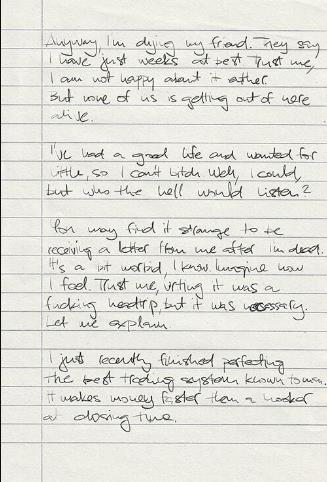 Anyway, I'm dying my friend. They say
I have just weeks at best. Trust me,
I am not happy about it either
But none of us is getting out of here
alive.
I've had a good life and wanted for
little, so I can't bitch. Well, I could,
but who the hell would listen?
You may find it strange to be
receiving a letter from me after I'm dead.
It's a bit morbid, I know. Imagine how
I feel. Trust me, writing it was a
fucking headtrip, but it was necessary.
Let me explain.
I just recently finished perfecting
the best trading system known to man.
It makes money faster than a hooker
at closing time.